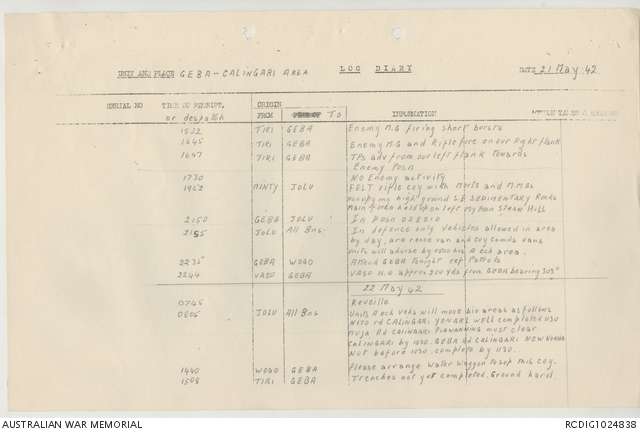 LOG DIARY
UNIT AND PLACE GEBA - CALINGARI AREA
DATE 21 May 42
SERIAL NO TIME OF RECEIPT, or despatch
ORIGIN
FROM To
INFORMATION
1532 TIRI GEBA Enemy M.G firing short bursts
1645 TIRI GEBA Enemy M.G and Rifle fire on our right flank
1647 TIRI GEBA TPs adv from our left flank towards
Enemy Posn
1730 No Enemy activity
MINTY JOLU FELT rifle coy with and M.M.Gs
high ground S.E. SEDIMENTARY Rocks
on left Hill
2150 GEBA JOLU In Posn 022210
JOLU All Bns In defence only vehicles allowed in area
by day, are recce van and Coy Comds vans
Units will advise by area.
2235 GEBA WOGO Attend GEBA tonight ref Patrols
2244 VASO GEBA VASO H.Q. approx 300 yds from GEBA bearing
22 May 42
0745 Reveille
JOLU All Bns Units A ech vehs will move areas as follows
rd CALINGARI well completed
PIAWANNING must clear
CALINGARI by 1030. GEBA rd CALINGARI
Not before 1030. complete by 1130.
1440 WOGO GEBA Please arrange water waggon my coy.
1508 TIRI GEBA Trenches not yet completed. Ground hard.
AUSTRALIAN WAR MEMORIAL
RCDIG1024838